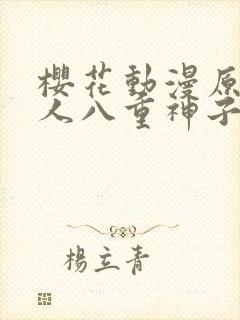 櫻花動漫原
人八重神子
楊立青